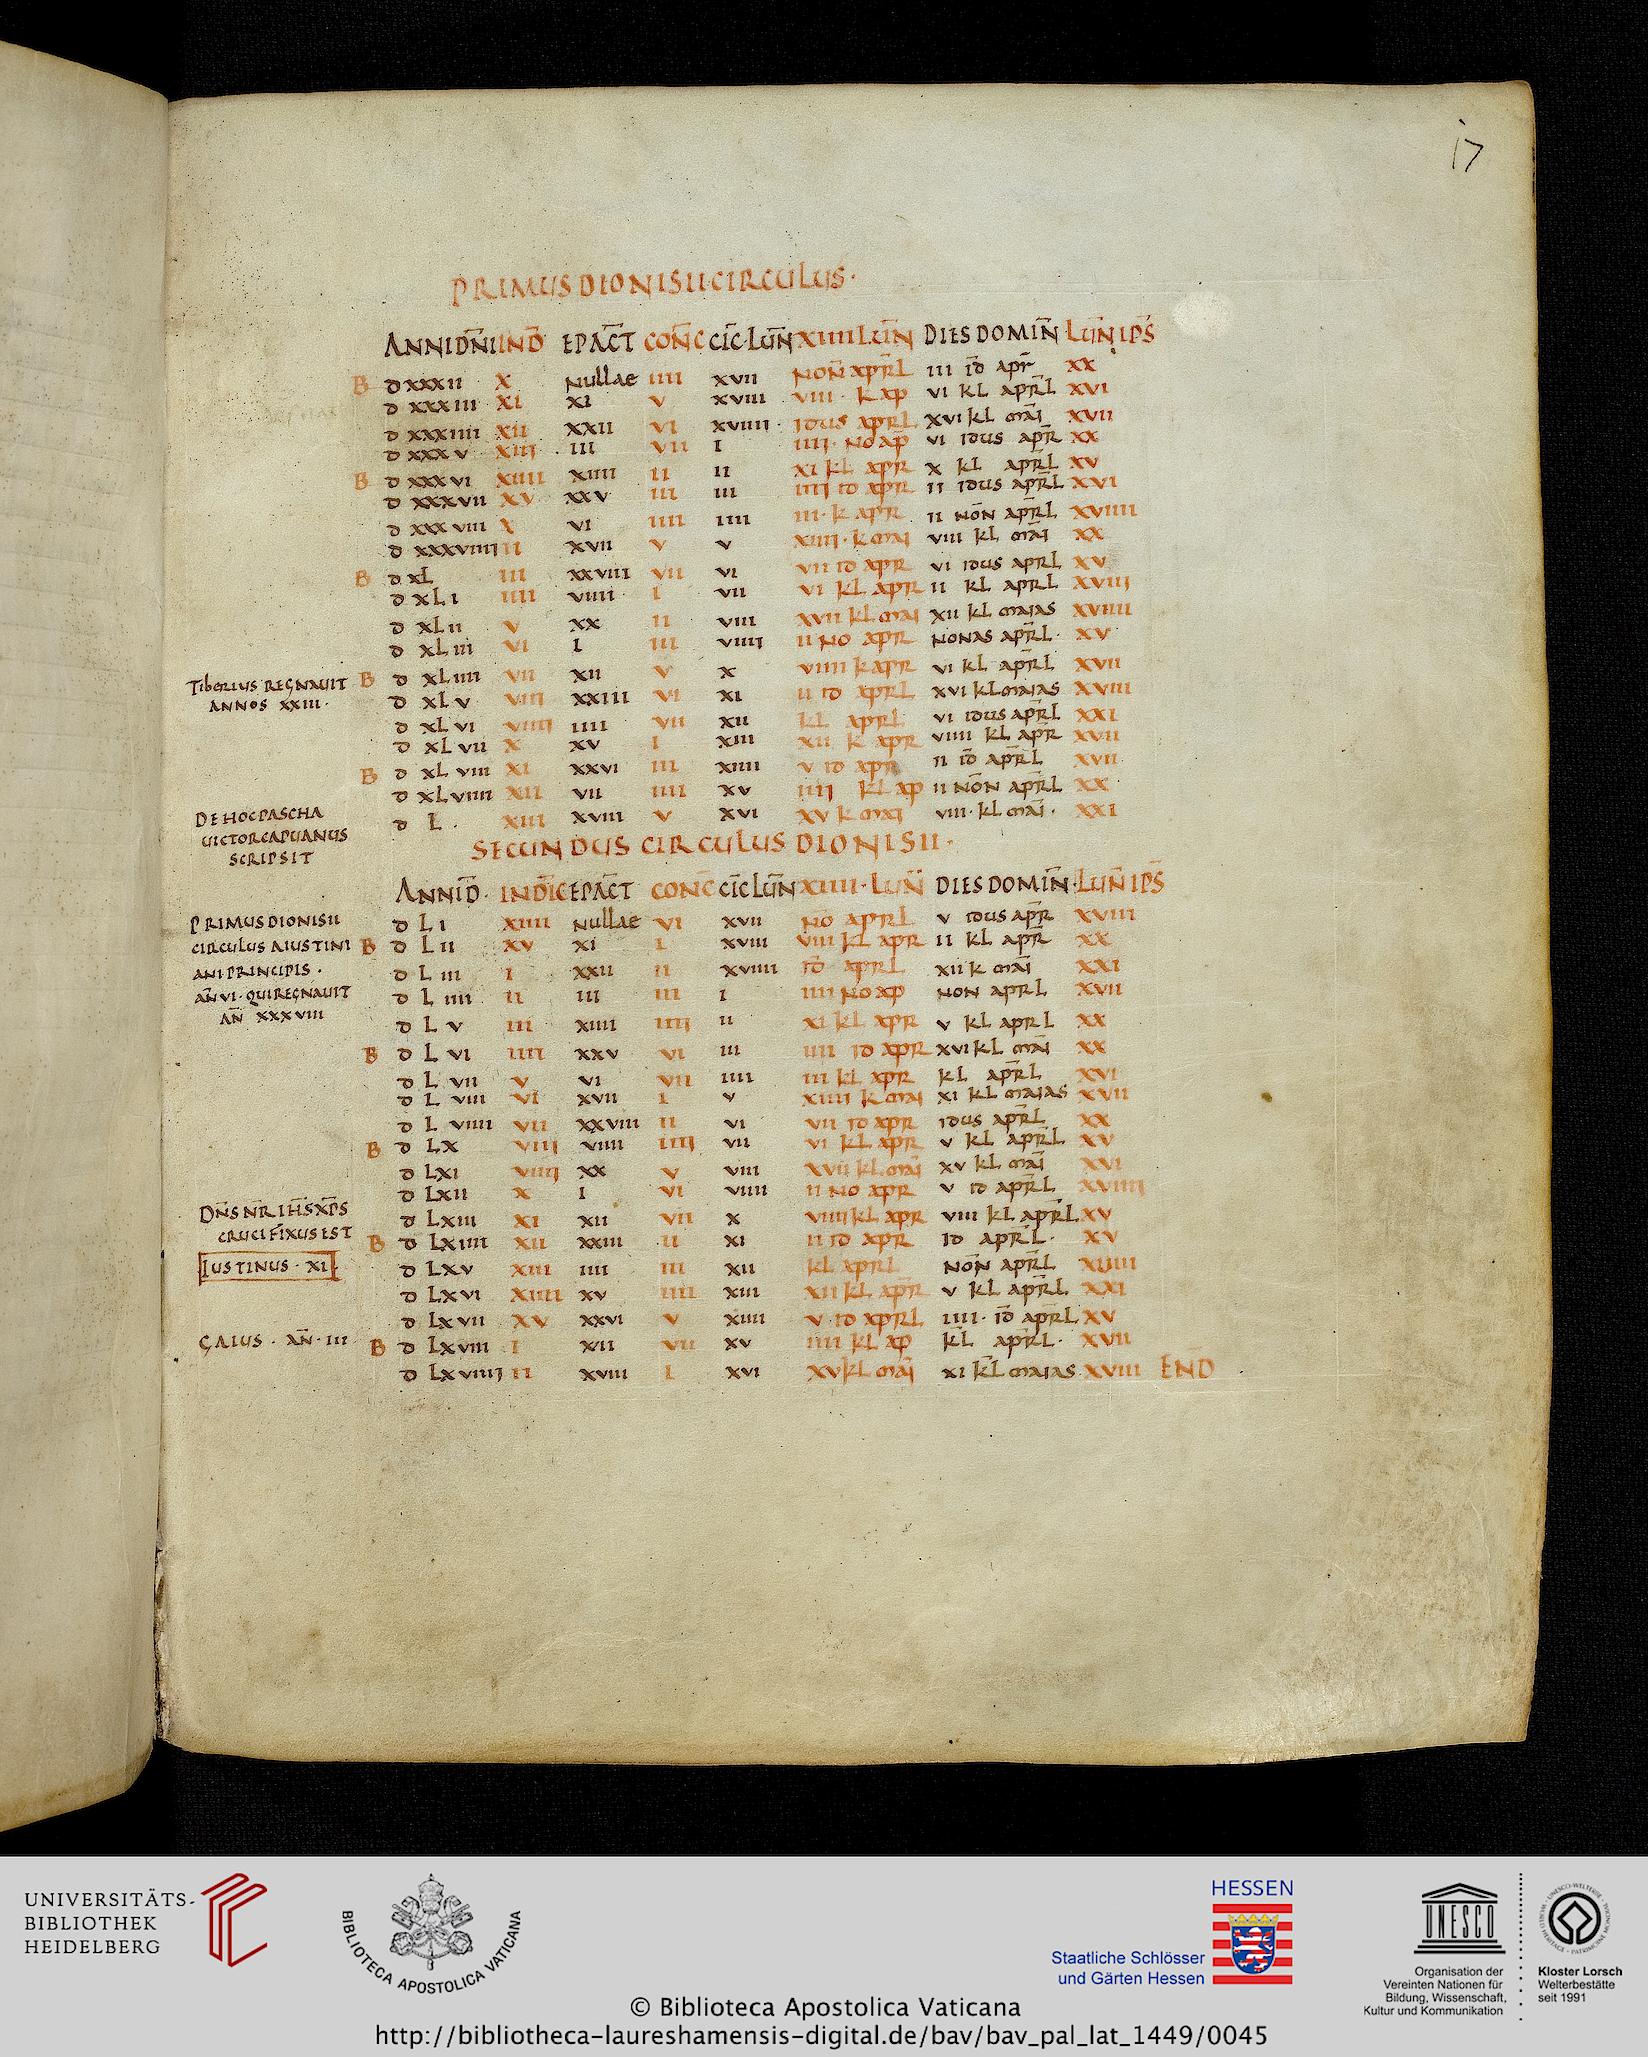 17
PRIMUS DIONISII CIRCULUS·
ANNI DN̄I IND̄ EPAC̄T CON̄C CIC̄ LUN̄ XIIII LUN̄ DIES DOMIN̄ LUN̄ IPS̄
B D XXXII X Nullae IIII XVII NON̄ APR̄L III ID̄ APR̄ XX
D XXXIII XI XI V XVIII VIII· K AP VI KL APR̄L XVI
D XXXIIII XII XXII VI XVIIII· IDUS APRL XVI KL MAI XVII
D XXXV XIII III VII I IIII· NO AP̄ VI IDUS APR̄ XX
B D XXXVI XIIII XIIII II II XI KL APR X KL APR̄L XV
D XXXVII XV XXV III III IIII ID APR II IDUS APR̄L XVI
D XXXVIII X VI IIII IIII III· K APR II NON̄ APR̄L XVIIII
D XXXVIIII II XVII V V XIIII· K MAI VIII KL MAI XX
B D XL III XXVIII VII VI VII ID APR VI IDUS APRL XV
D XLI IIII VIIII I VII VI KL APR II KL APRL XVIII
D XLII V XX II VIII XVII KL MAI XII KL MAIAS XVIIII
D XLIII VI I III VIIII II NO APR NONAS APR̄L· XV
TIBERIUS REGNAUIT B D XLIIII VII XII V X VIIII K APR VI KL APR̄L XVII
ANNOS XXIII· D XLV VIII XXIII VI XI II ID APRL XVI KL MAIAS XVIII
D XLVI VIIII IIII VII XII KL APRL VI IDUS APR̄L XXI
D XLVII X XV I XIII XII K APR VIIII KL APR̄ XVII
B D XLVIII XI XXVI III XIIII V ID APR II ID̄ APR̄L XVII
D XLVIIII XII VII IIII XV IIII KL AP II NON̄ APR̄L XX
DE HOC PASCHA
UICTOR CAPUANUS
SCRIPSIT
D L· XIII XVIII V XVI XV K MAI VIII· KL MAI· XXI
SECUNDUS CIRCULUS DIONISII·
ANNI D̄· INDIC̄ EPAC̄T CON̄C CIC̄ LUN̄ XIIII· LUN̄ DIES DOMIN̄· LUN̄ IPS̄
PRIMUS DIONISII
CIRCULUS A IUSTINI
ANI PRINCIPIS·
AN̄ VI· QUI REGNAUIT
AN̄ XXXVIII
D LI XIIII Nullae VI XVII NO APRL V IDUS APR̄ XVIII
B D LII XV XI I XVIII VIII KL APR II KL APR̄ XX
D LIII I XXII II XVIIII ID̄ APRL XII K MAI XXI
D LIIII II III III I IIII NO AP NON APRL XVII
D LV III XIIII IIII II XI KL APR V KL APRL XX
B D LVI IIII XXV VI III IIII ID APR XVI KL MAI XX
D LVII V VI VII IIII III KL APR KL APR̄L XVI
D LVIII VI XVII I V XIIII K MAI XI KL MAIAS XVII
D LVIIII VII XXVIII II VI VII ID APR IDUS APR̄L XX
B D LX VIII VIIII IIII VII VI KL APR V KL APR̄L XV
D LXI VIIII XX V VIII XVII KL MAI XV KL MAI XVI
D LXII X I VI VIIII II NO APR V ID APR̄L XVIIII
DN̄S NR̄ IH̄S XP̄S
CRUCIFIXUS EST
D LXIII XI XII VII X VIIII KL APR VIII KL APR̄L XV
B D LXIIII XII XXIII II XI II ID APR ID APRL· XV
IUSTINUS· XI
D LXV XIII IIII III XII KL APRL NON̄ APR̄L XVIIII
D LXVI XIIII XV IIII XIII XII KL APR V KL APR̄L XXI
D LXVII XV XXVI V XIIII V· ID APRL IIII· ID̄ APR̄L XV
GAIUS· AN̄· III B D LXVIII I XII VII XV IIII KL AP KL APR̄L· XVII
D LXVIIII II XVIII I XVI XV KL MAI XI KL MAIAS XVIII END
UNIVERSITÄTS-
BIBLIOTHEK
HEIDELBERG
BIBLIOTECA APOSTOLICA VATICANA
HESSEN
Staatliche Schlösser
und Gärten Hessen
UNESCO
Organisation der
Vereinten Nationen für
Bildung, Wissenschaft,
Kultur und Kommunikation
Kloster Lorsch
Welterbestätte
seit 1991
© Biblioteca Apostolica Vaticana
http://bibliotheca-laureshamensis-digital.de/bav/bav_pal_lat_1449/0045